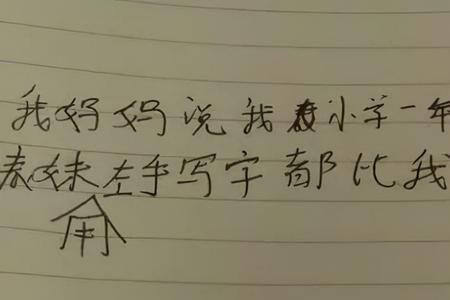 我妈妈说我小学一年
表妹用左手写字都比我